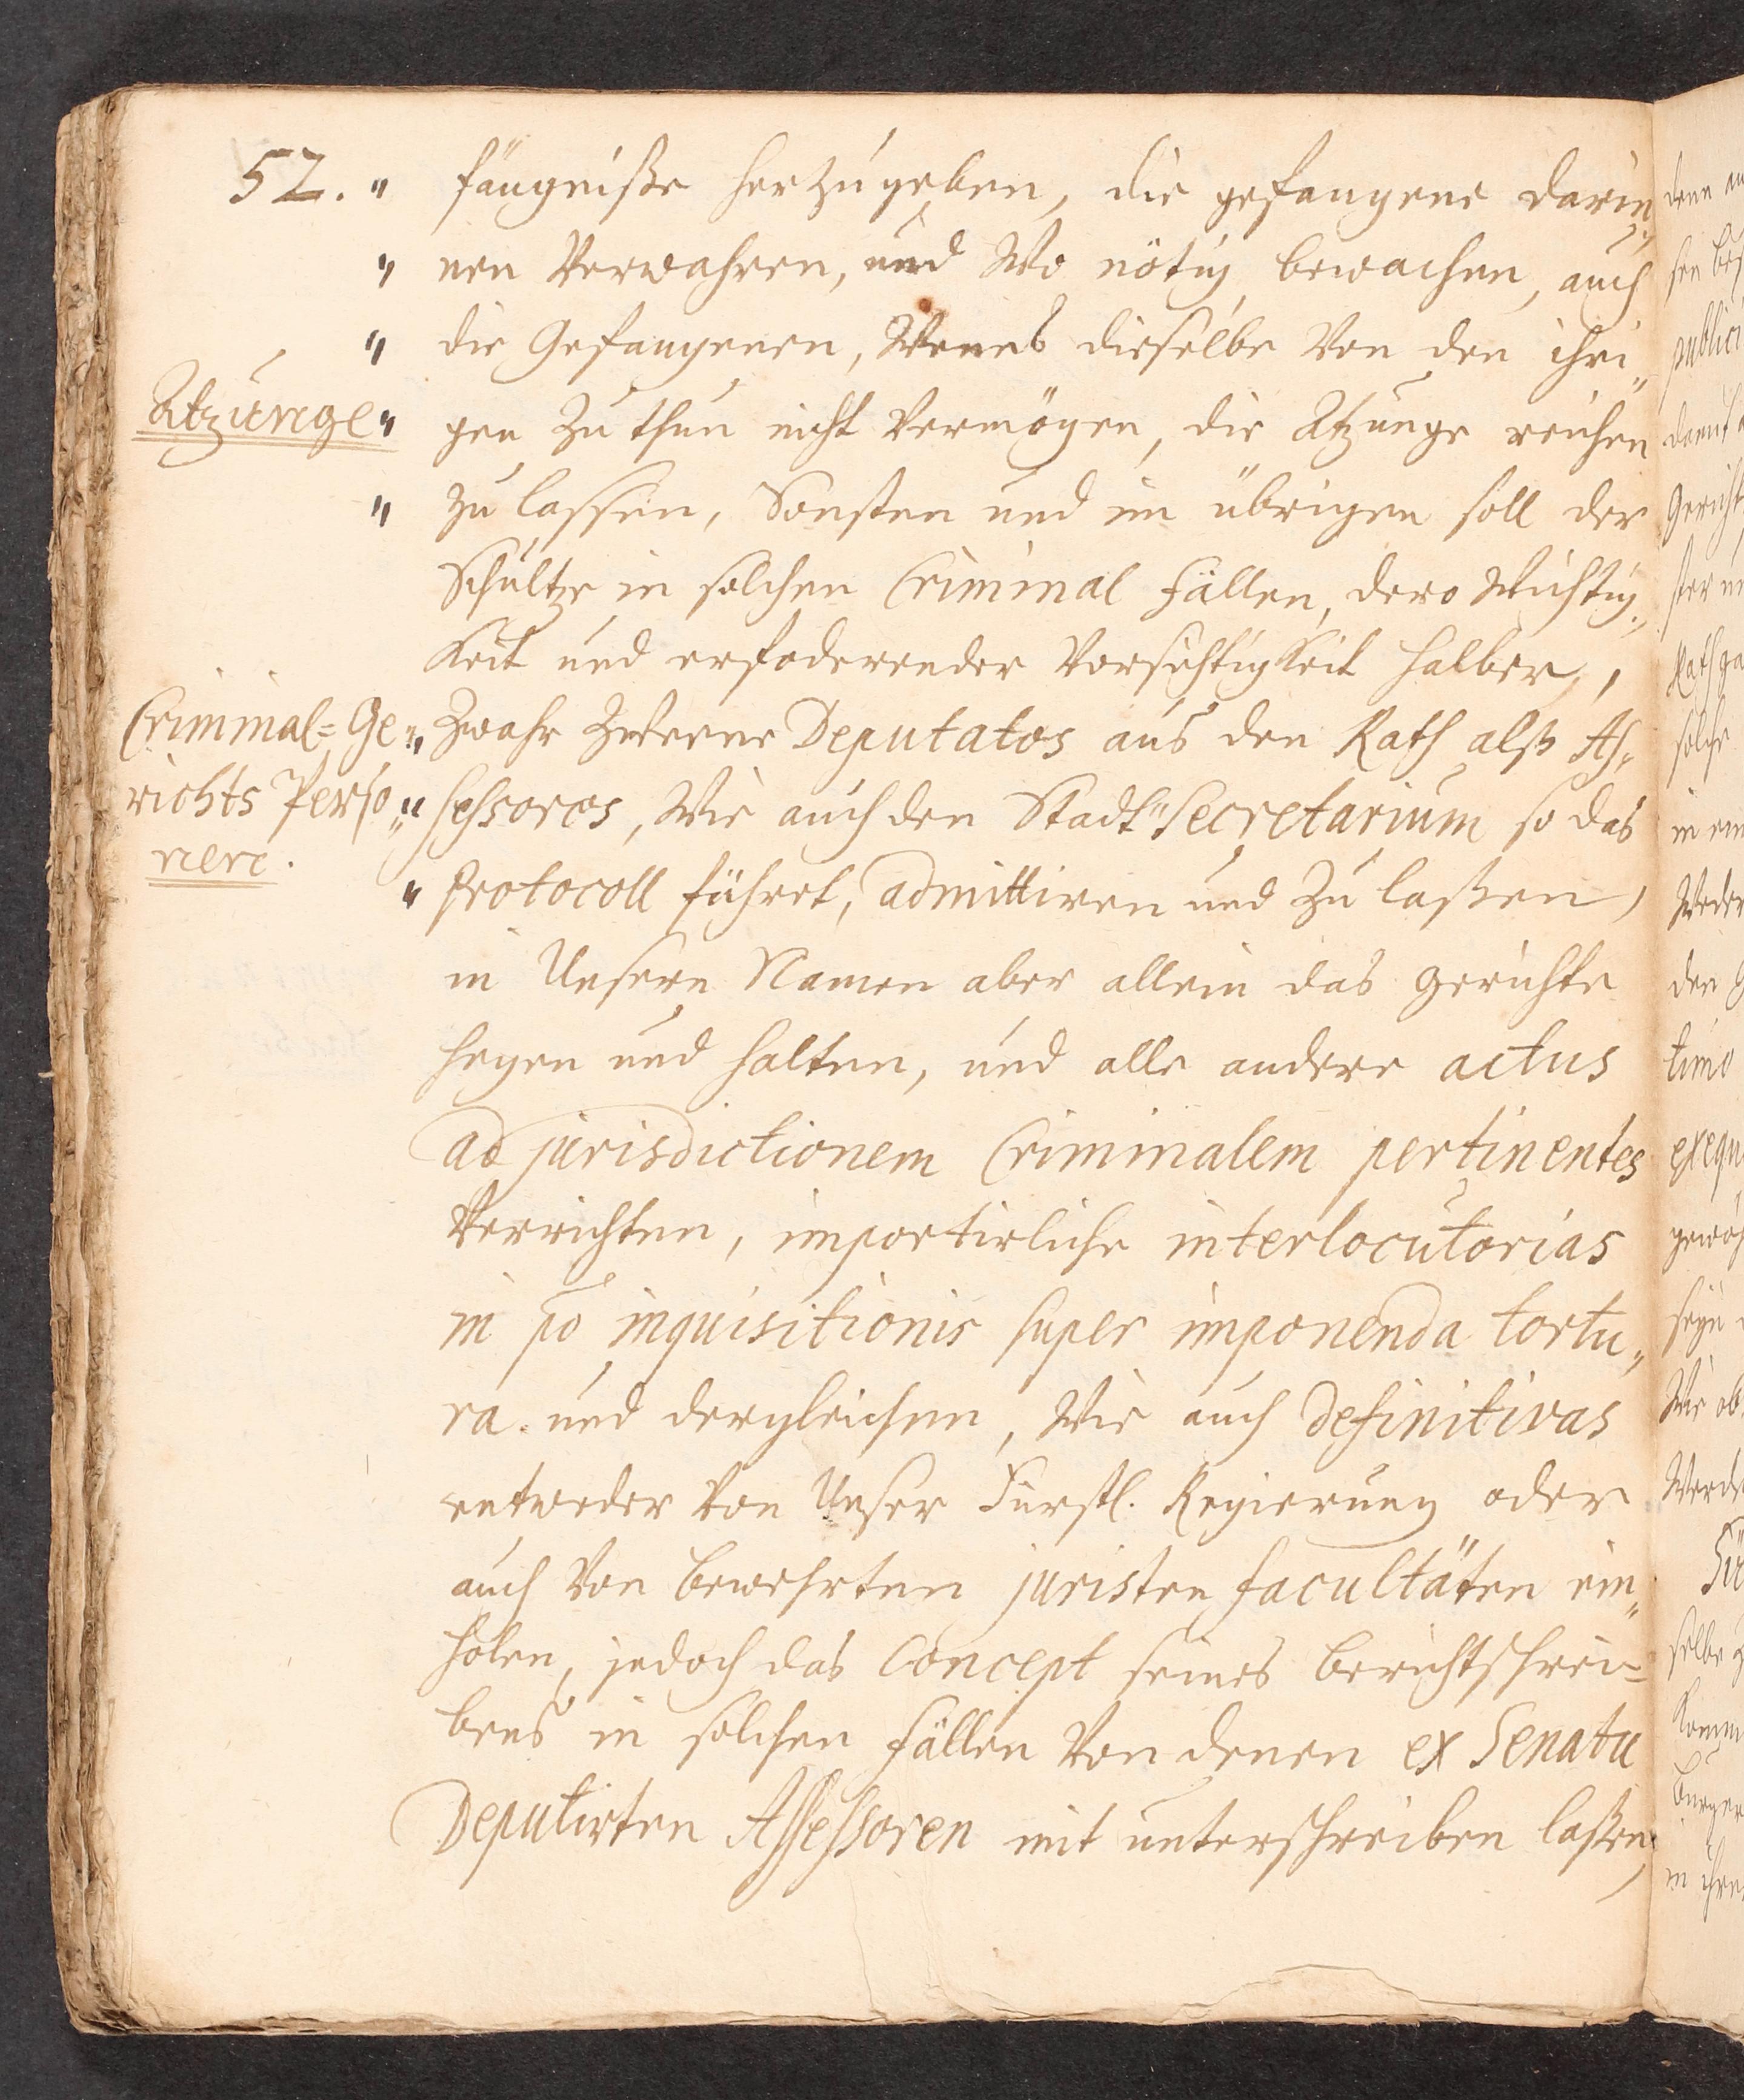 52. " fängniße herzugeben, die gefangene darin„
" nen Verwahren, und Wo nötig bewachen, auch
" die Gefangenen, Wenns dieselbe Von den ihri„
Atzunge " gen zu thun nicht Vermögen, die Atzunge reichen
" zu lassen, Sonsten und im übrigen soll der
Schultze in solchen Criminal Fällen, dero Wichtig„
Keit und erfoderender Vorsichtigkeit halber,
Criminal=Ge„ " zwahr Deputatos aus den Rath alß As„
richts Perso„ " sessores, Wie auch den Stadt Secretarium so das
nen. " Protocoll führet, admittiren und zu laßen,
in Unsern Namen aber allein das gerichte
hegen und halten, und alle andere actus
ad jurisdictionem Criminalem pertinentes
Verrichten, importirliche interlocutorias
in po inquisitionis super imponenda tortu„
ra und dergleichen, Wie auch definitivas
entweder Von Unser Fürstl. Regierung oder
auch Von bewehrten juristen facultäten ein„
holen, jedoch das Concept seines berichtschrei=
bens in solchen Fällen Von denen ex Senatu
Deputirten Assessoren mit unterschreiben laßen,